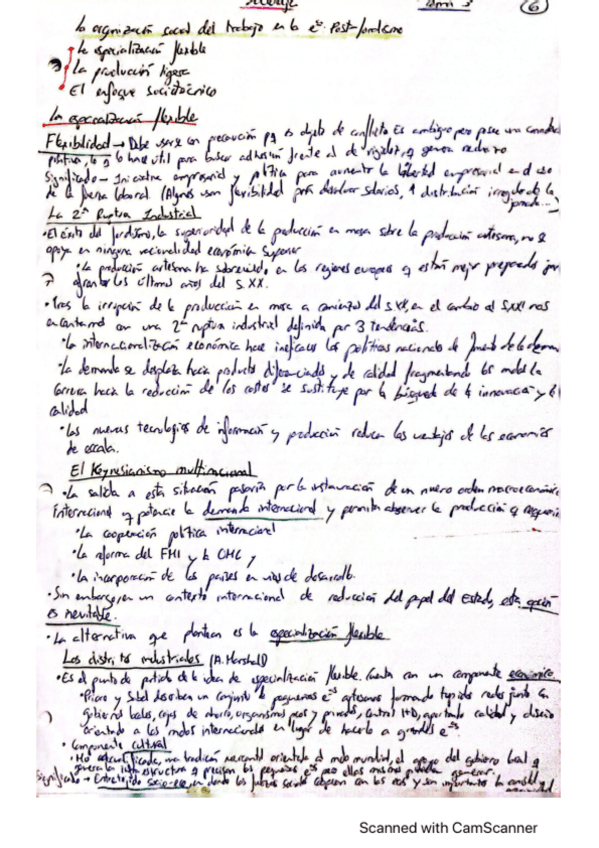 Tema 3
6
La organización social del trabajo en la eª Post-fordismo
La especialización flexible
La producción ligera
El enfoque sociotécnico
La especialización flexible
Flexibilidad → Debe usarse con precaución pq es objeto de conflicto. Es ambiguo pero posee una
positiva, lo q lo hace útil para buscar adhesión frente al de rigidez, q genera rechazo
Significado → Iniciativa empresarial y política para aumentar la libertad empresarial en el uso
de la fuerza laboral (Algunos usan flexibilidad para salarios, distribución irregular de la
jornada...)
La 2ª Ruptura Industrial
• El éxito del fordismo, la superioridad de la producción en masa sobre la producción artesana, no se
apoya en ninguna racionalidad económica superior
• La producción artesana ha sobrevivido, en las regiones europeas q están mejor preparadas para
afrontar los últimos años del S.XX.
• Tras la irrupción de la producción en masa a comienzos del S.XX, en el cambio al S.XXI nos
encontramos con una 2ª ruptura industrial definida por 3 tendencias.
• La internacionalización económica hace ineficaces las políticas nacionales de fomento de la demanda
• La demanda se desplaza hacia productos diferenciados y de calidad fragmentando los mdos. La
carrera hacia la reducción de los costes se sustituye por la búsqueda de la innovación y la
calidad
• Las nuevas tecnologías de información y producción reducen las ventajas de las economías
de escala.
El Keynesianismo multinacional
• La salida a esta situación pasaría por la instauración de un nuevo orden macroeconómico
Internacional q potencie la demanda internacional y permita absorber la producción q
• La cooperación política internacional
• La reforma del FMI y la OMC y
• La incorporación de los países en vías de desarrollo.
• Sin embargo, en un contexto internacional de reducción del papel del Estado, esta opción
es inevitable.
• La alternativa que plantean es la especialización flexible
Los distritos industriales (A. Marshall)
• Es el punto de partida de la idea de especialización flexible. Cuenta con un componente económico
• Piore y Sabel describen un conjunto de pequeñas eªs artesanas formando tupidas redes junto con
gobiernos locales, cajas de ahorro, organismos pcos y privados, control I+D, aportando calidad y diseño
orientado a los mdos internacionales en lugar de hacerlo a grandes eªs
• Componente cultural
una tradición mercantil orientada al mdo mundial, el apoyo del gobierno local q
genera la infraestructura q precisan las pequeñas eªs pero ellas mismas no pueden generar.
Significado → Entretejido socio-eco en donde las fuerzas sociales cooperan con las eco y son importantes la amistad y
Scanned with CamScanner